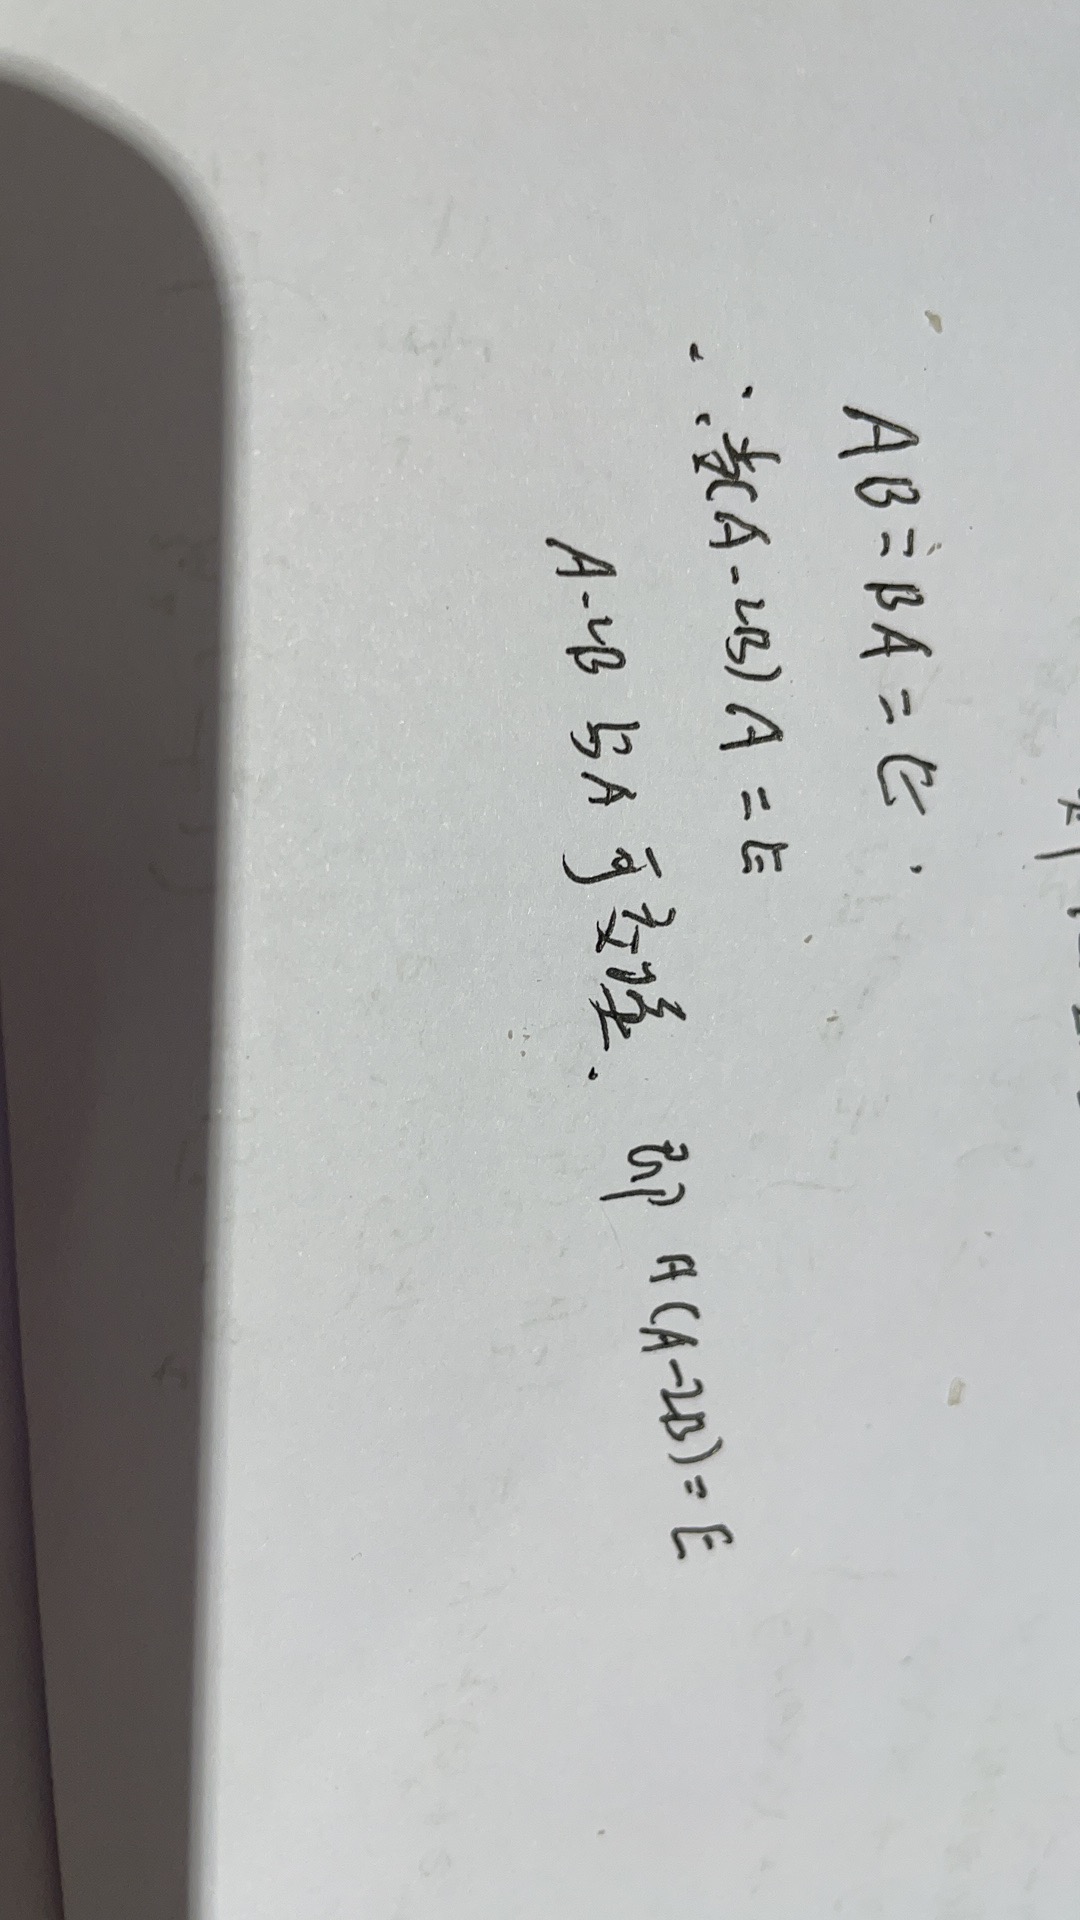 AB=BA=E.
∴ (A-2B)A=E
A-2B与A可交换. 即 A(A-2B)=E